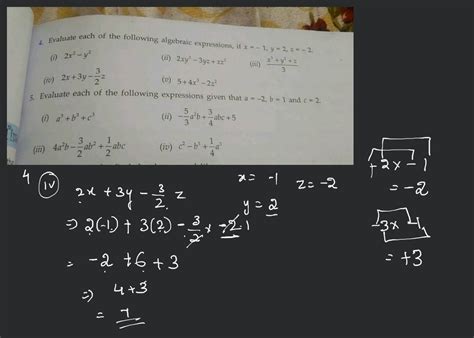 4. Evaluate each of the following algebraic expressions, if x = - 1, y = 2, z = - 2.
(i) 2x² - y² (ii) 2xy³ - 3yz + xz²
(iv) 2x + 3y - 3/2 z (v) 5 + 4x³ - 2z²
5. Evaluate each of the following expressions given that a = -2, b = 1 and c = 2.
(i) a³ + b³ + c³ (ii) -5/3 a²b + 3/4 abc + 5
(iii) 4a²b - 3/2 ab² + 1/2 abc
4 (iv) 2x + 3y - 3/2 z x = -1 z = -2
y = 2
⇒ 2(-1) + 3(2) - 3/2 x -2 1
= -2 + 6 + 3
⇒ 4+3
= 7
+2x - 1
= -2
-3x -1
= +3